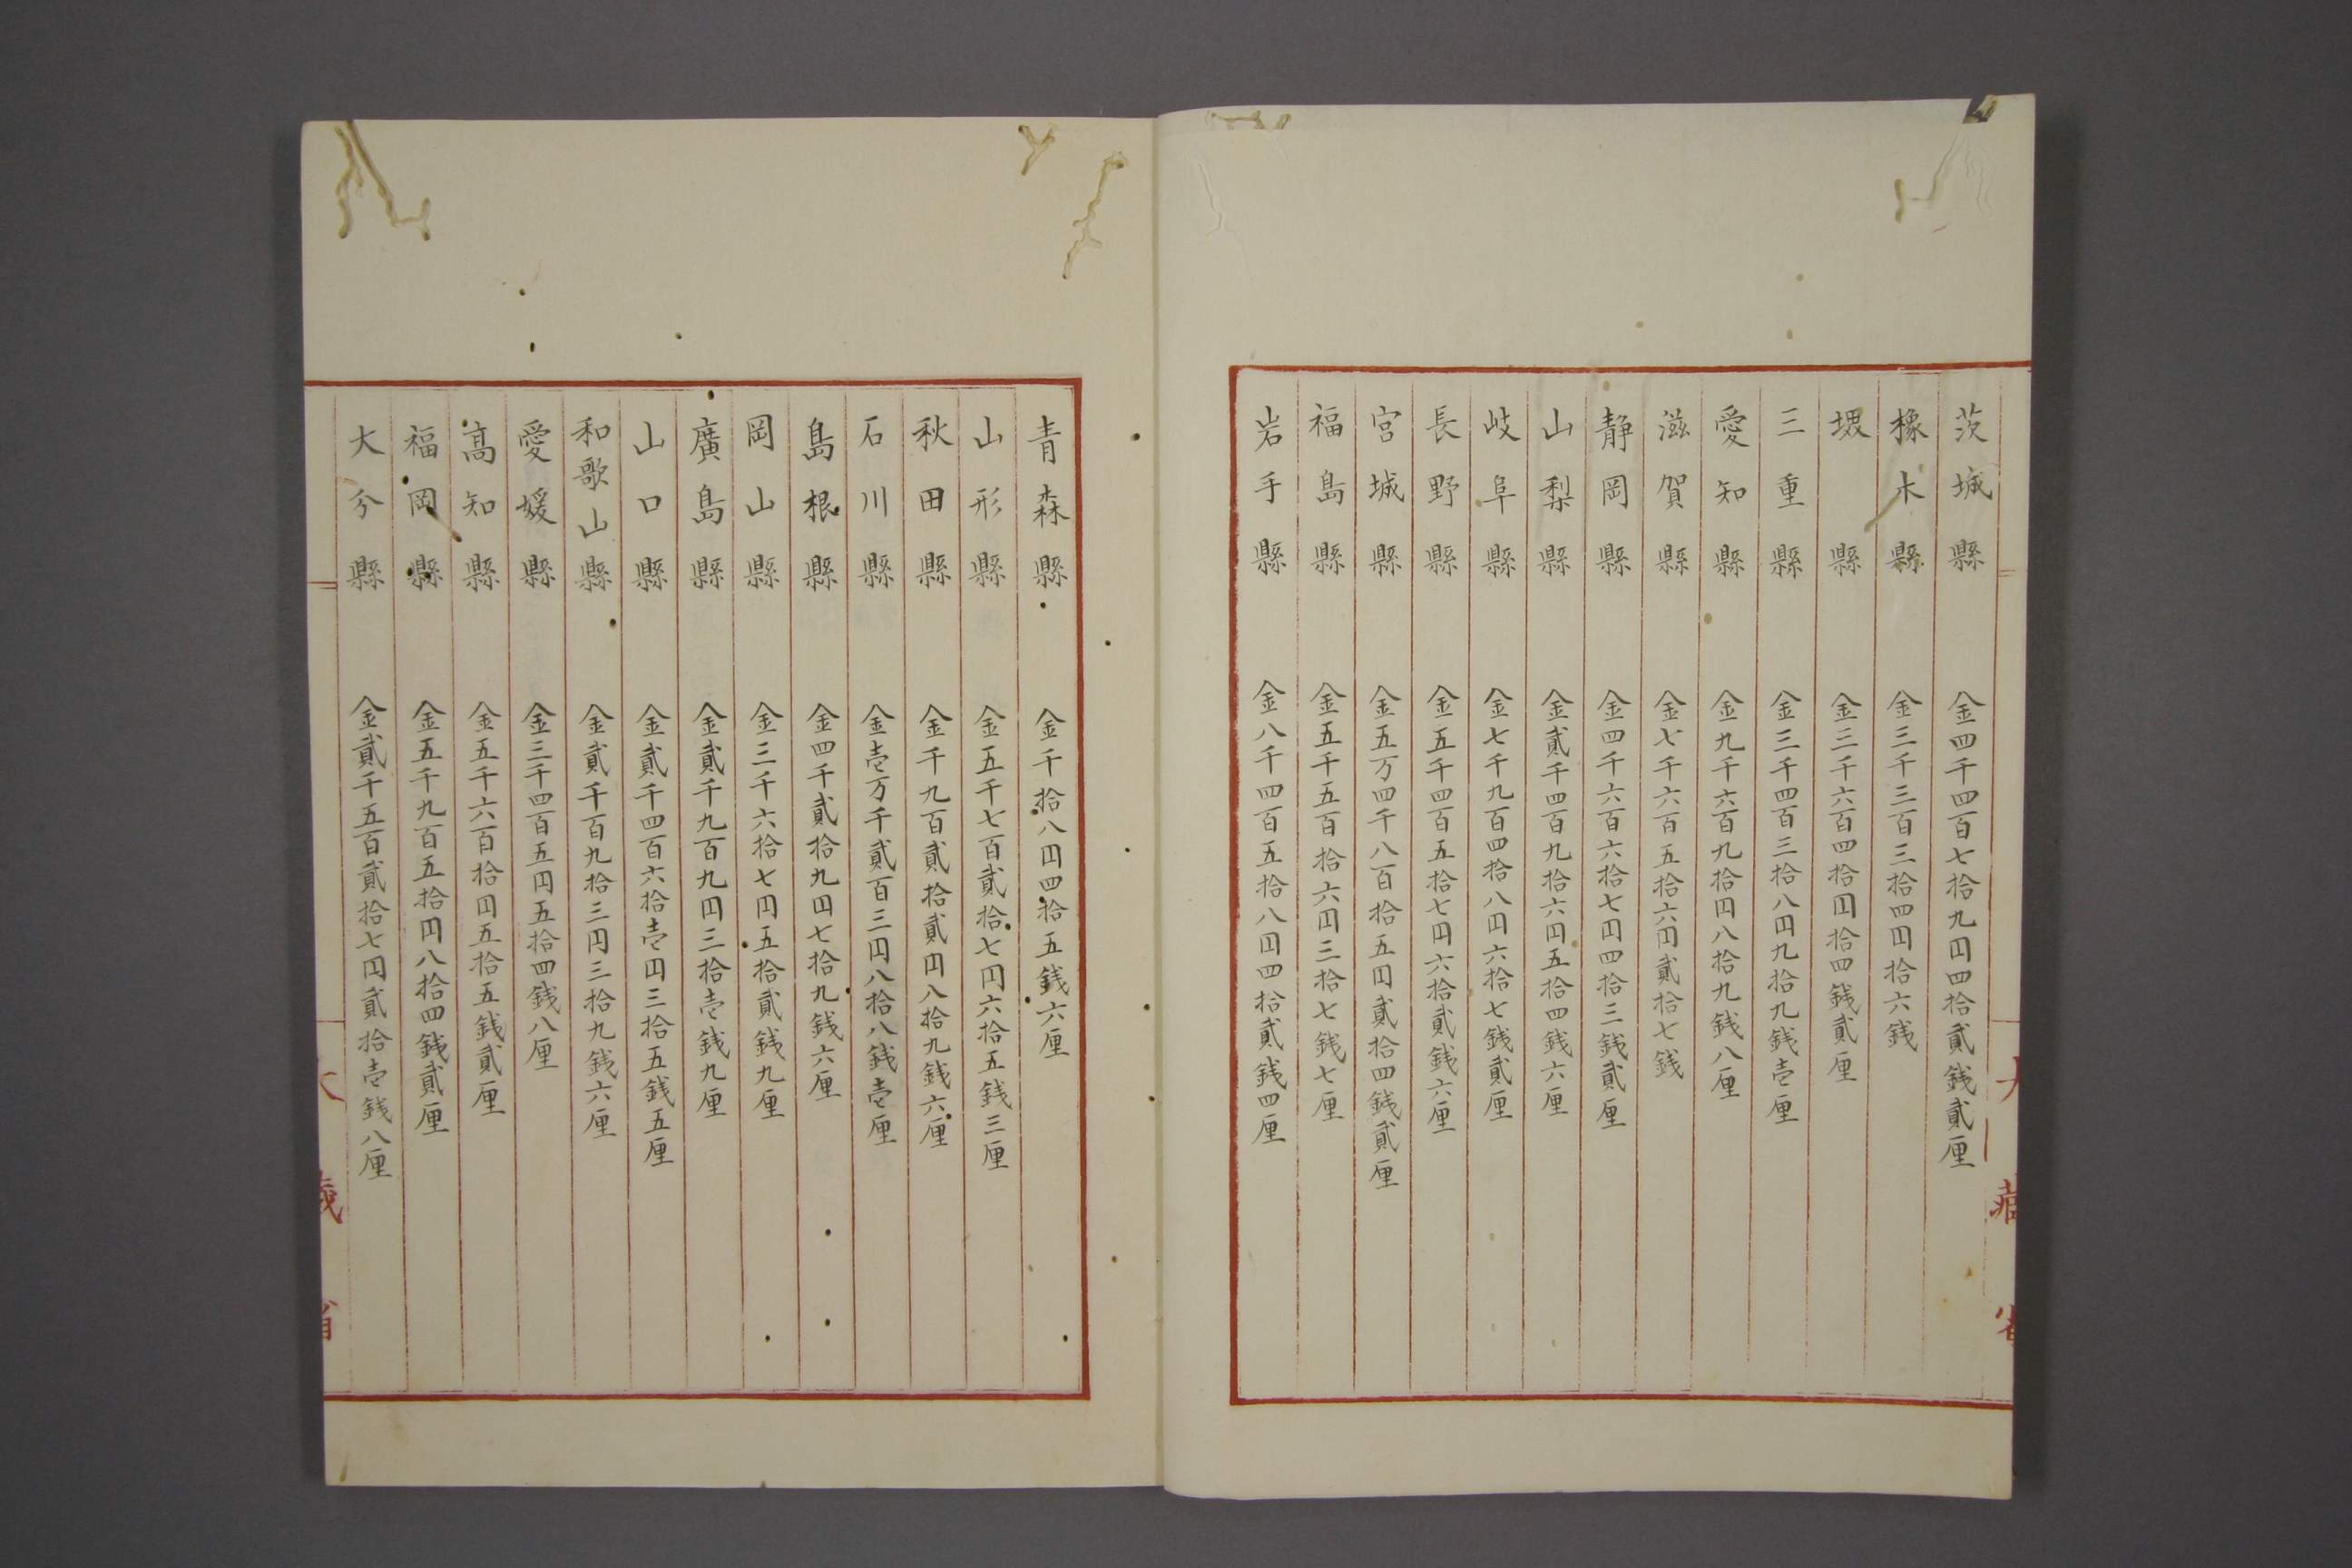 茨城縣 金四千四百七拾九円四拾貳銭貳厘
橡木縣 金三千三百三拾四円拾六銭
堺縣 金三千六百四拾円拾四銭貳厘
三重縣 金三千四百三拾八円九拾九銭壱厘
愛知縣 金九千六百九拾円八拾九銭八厘
滋賀縣 金七千六百五拾六円貳拾七銭
静岡縣 金四千六百六拾七円四拾三銭貳厘
山梨縣 金貳千四百九拾六円五拾四銭六厘
岐阜縣 金七千九百四拾八円六拾七銭貳厘
長野縣 金五千四百五拾七円六拾貳銭六厘
宮城縣 金五万四千八百拾五円貳拾四銭貳厘
福島縣 金五千五百拾六円三拾七銭七厘
岩手縣 金八千四百五拾八円四拾貳銭四厘
青森縣 金千拾八円四拾五銭六厘
山形縣 金五千七百貳拾七円六拾五銭三厘
秋田縣 金千九百貳拾貳円八拾九銭六厘
石川縣 金壱万千貳百三円八拾八銭壱厘
島根縣 金四千貳拾九円七拾九銭六厘
岡山縣 金三千六拾七円五拾貳銭九厘
廣島縣 金貳千九百九円三拾壱銭九厘
山口縣 金貳千四百六拾壱円三拾五銭五厘
和歌山縣 金貳千百九拾三円三拾九銭六厘
愛媛縣 金三千四百五円五拾四銭八厘
高知縣 金五千六百拾円五拾五銭貳厘
福岡縣 金五千九百五拾円八拾四銭貳厘
大分縣 金貳千五百貳拾七円貳拾壱銭八厘
大藏省